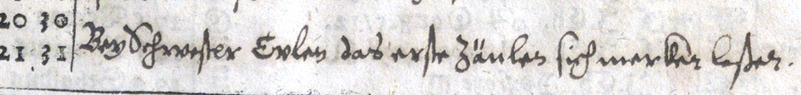 20 30
21 31 Bey Schwester Evlen das erste Zänlen sich mercken laßen.